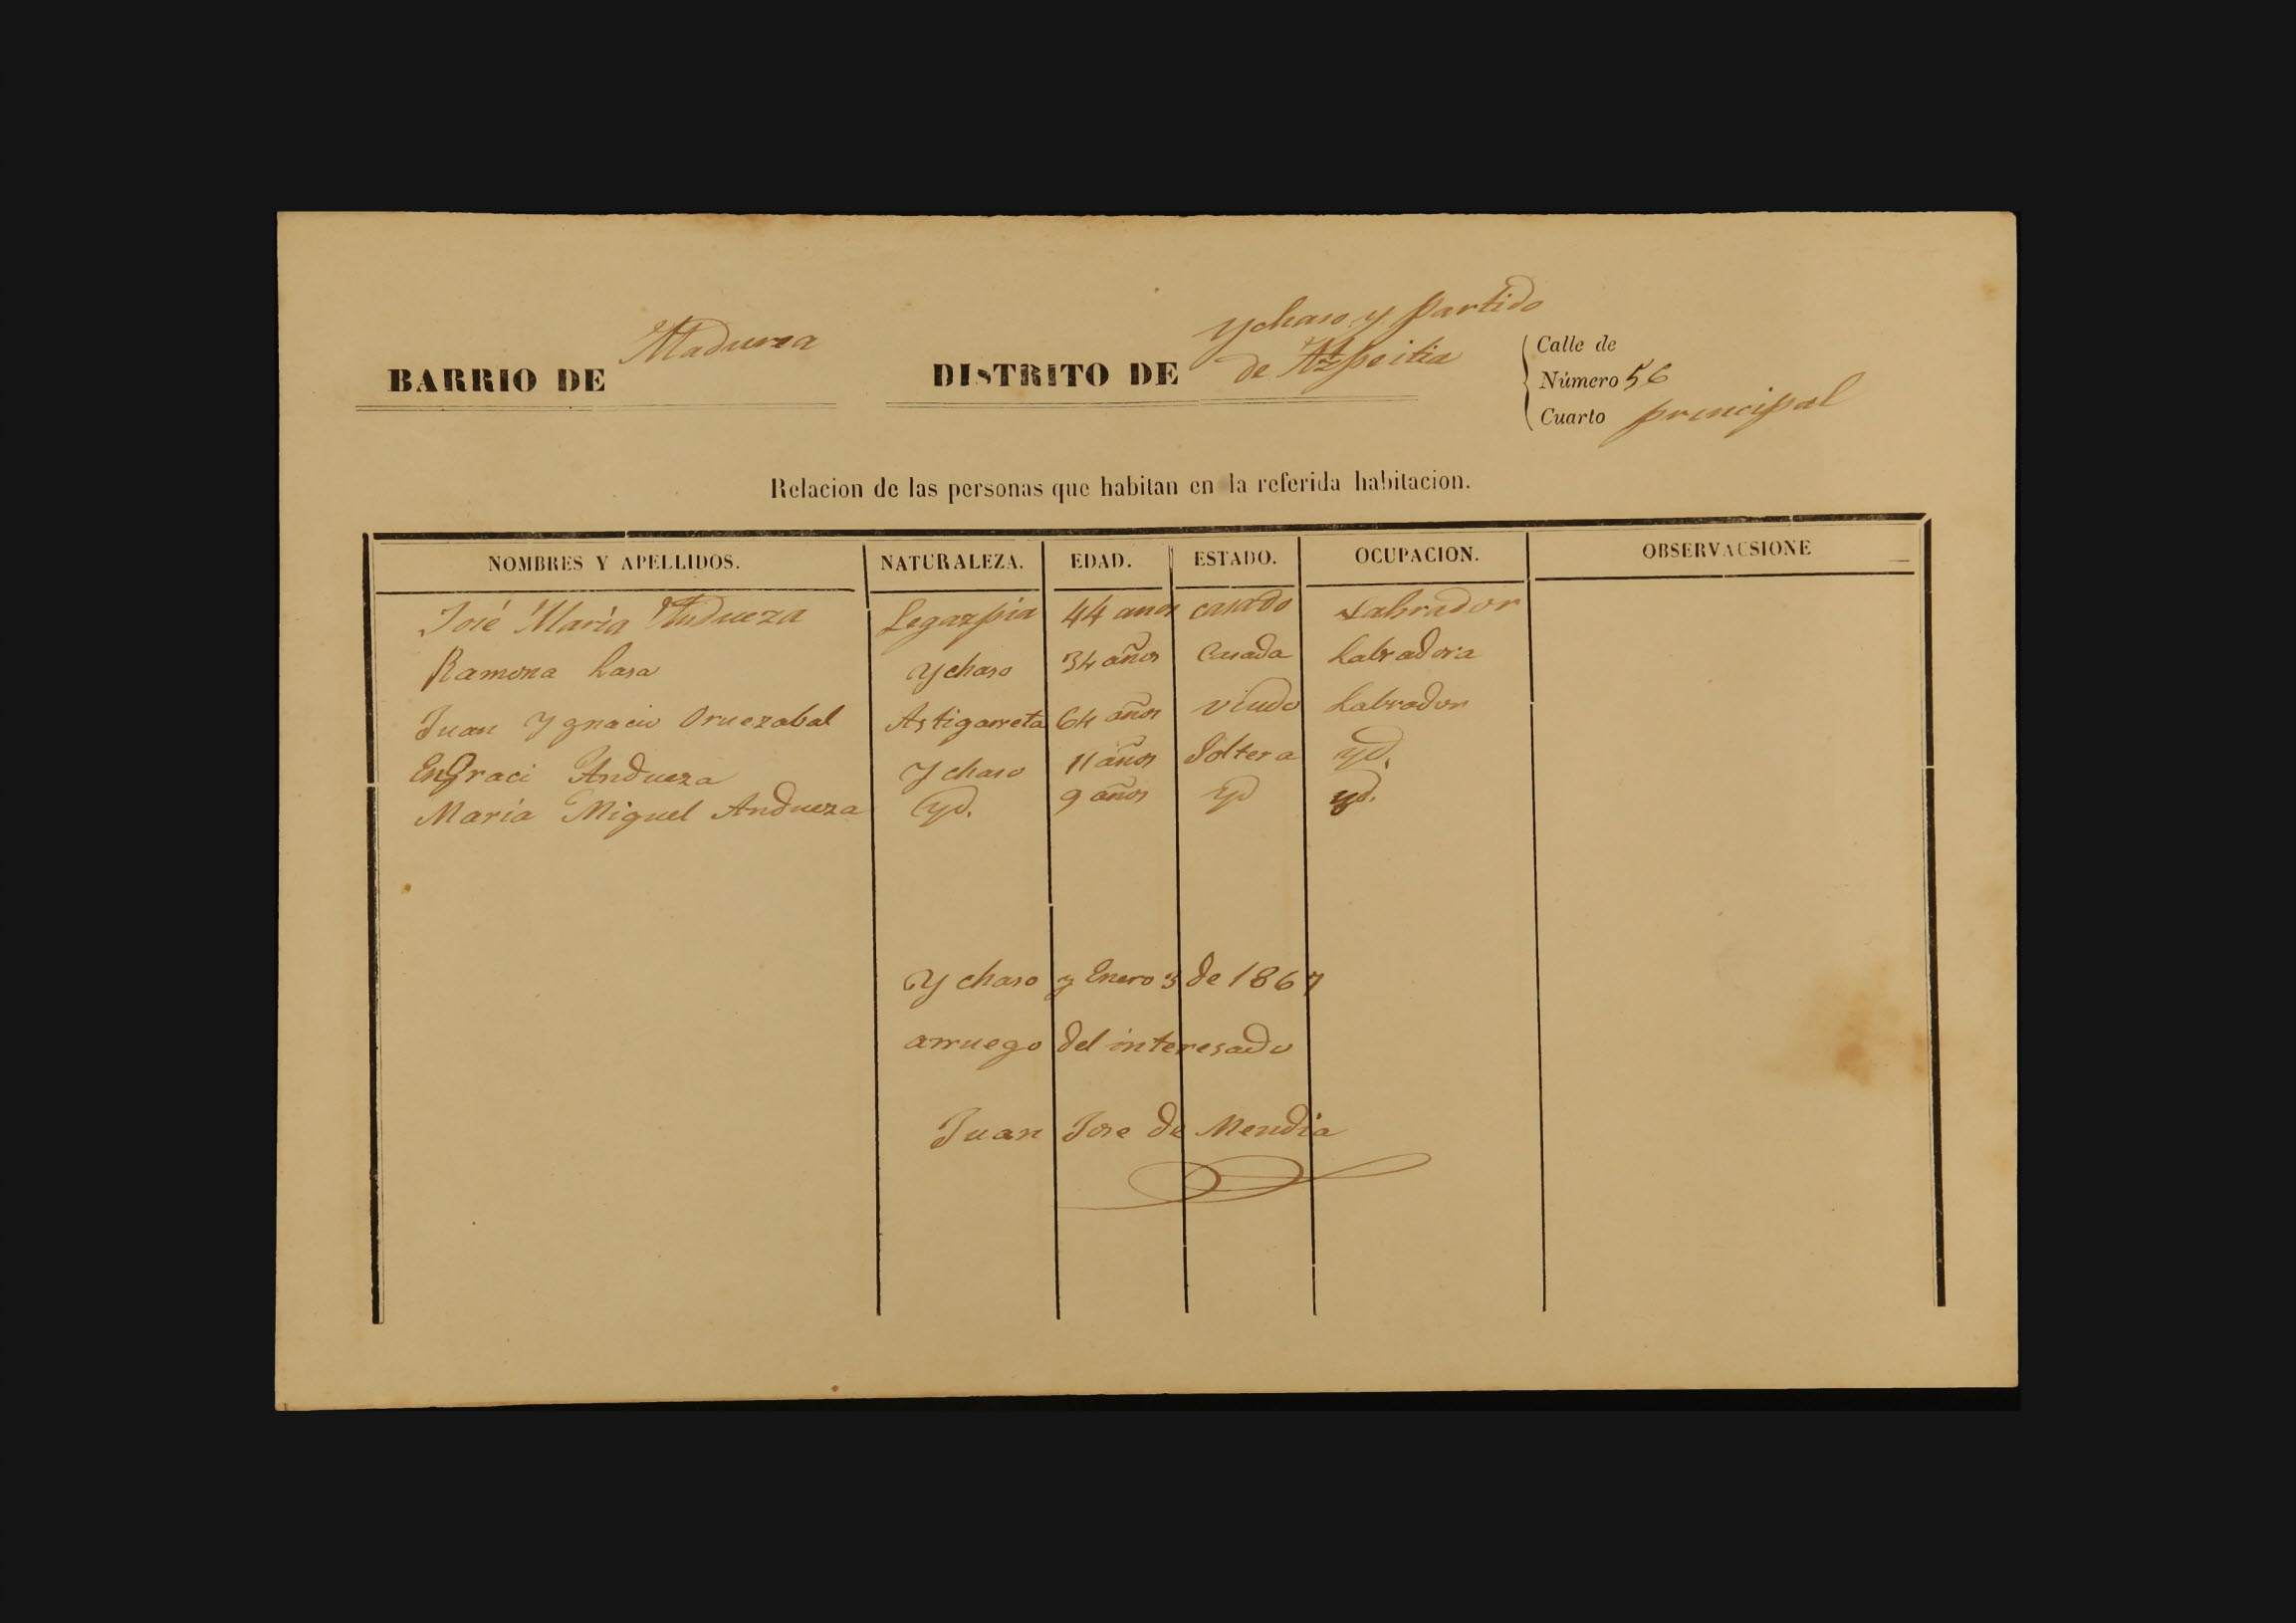 BARRIO DE Madurra
DISTRITO DE Ychaso y partido
de Atzpeitia
Calle de
Número 56
Cuarto principal
Relacion de las personas que habitan en la referida habitacion.
NOMBRES Y APELLIDOS. NATURALEZA. EDAD. ESTADO. OCUPACION. OBSERVACSIONE
José María Andueza Legazpia 44 anos casado Labrador
Ramona Lasa Ychaso 34 años Casada Labradora
Juan Ygnacio Oruezabal Astigarreta 64 años viudo Labrador
EnGraci Andueza Ychaso 11 años Soltera yd.
Maria Miguel Andueza yd. 9 años yd yd.
Ychaso y Enero 3 de 1867
arruego del interesado
Juan Jose de Mendia